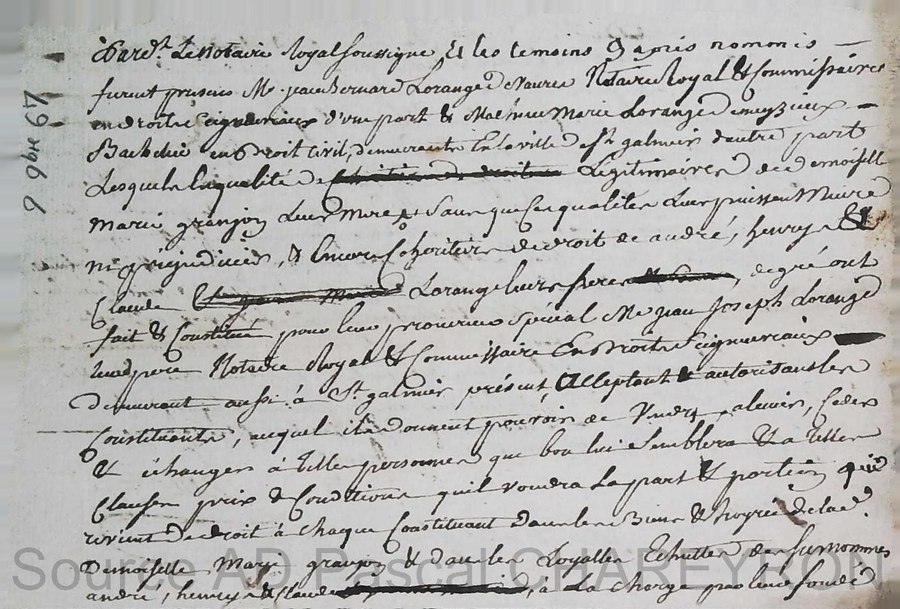 Pard.t Le Notaire Royal soussigné, et les temoins cy apres nommés
furent presens Me. jean Bernard Lorange Notaire Royal & Commissaire
en droits seigneuriaux d'une part & Marie Lorange
en droit civil, demeurants en la ville de st galmier d'autre part
Lesquels en qualité de Legitimaires de demoiselle
marie granjon Leur mere & sans que ces qualités Leur puissent Nuire
ni prejudicier, & Encore Cohoritiers de droit de andré, henry &
Claude Lorange leurs freres, de gré ont
fait & Constitué pour leur procureur spécial Me jean Joseph Lorange
leur pere Notaire Royal & Commissaire En droits seigneuriaux
demeurant aussi à St. galmier présent, acceptant & autorisant les
Constituants, auquel ils donnent pouvoir de Vendre, aliener, Ceder
& échanger à telles personnes que bon lui semblera & a telles
Clauses prix & Conditions qu'il voudra La part & portion qui
revient de droit à chaque Constituant dans les Biens & hoyrie de lad.
Demoiselle Mary granjon & dans les Echuttes de surnommés
andré, henry & Claude, a La Charge par leur fondé
49 Hyb 6
Source AD Pascal CHAREYRON